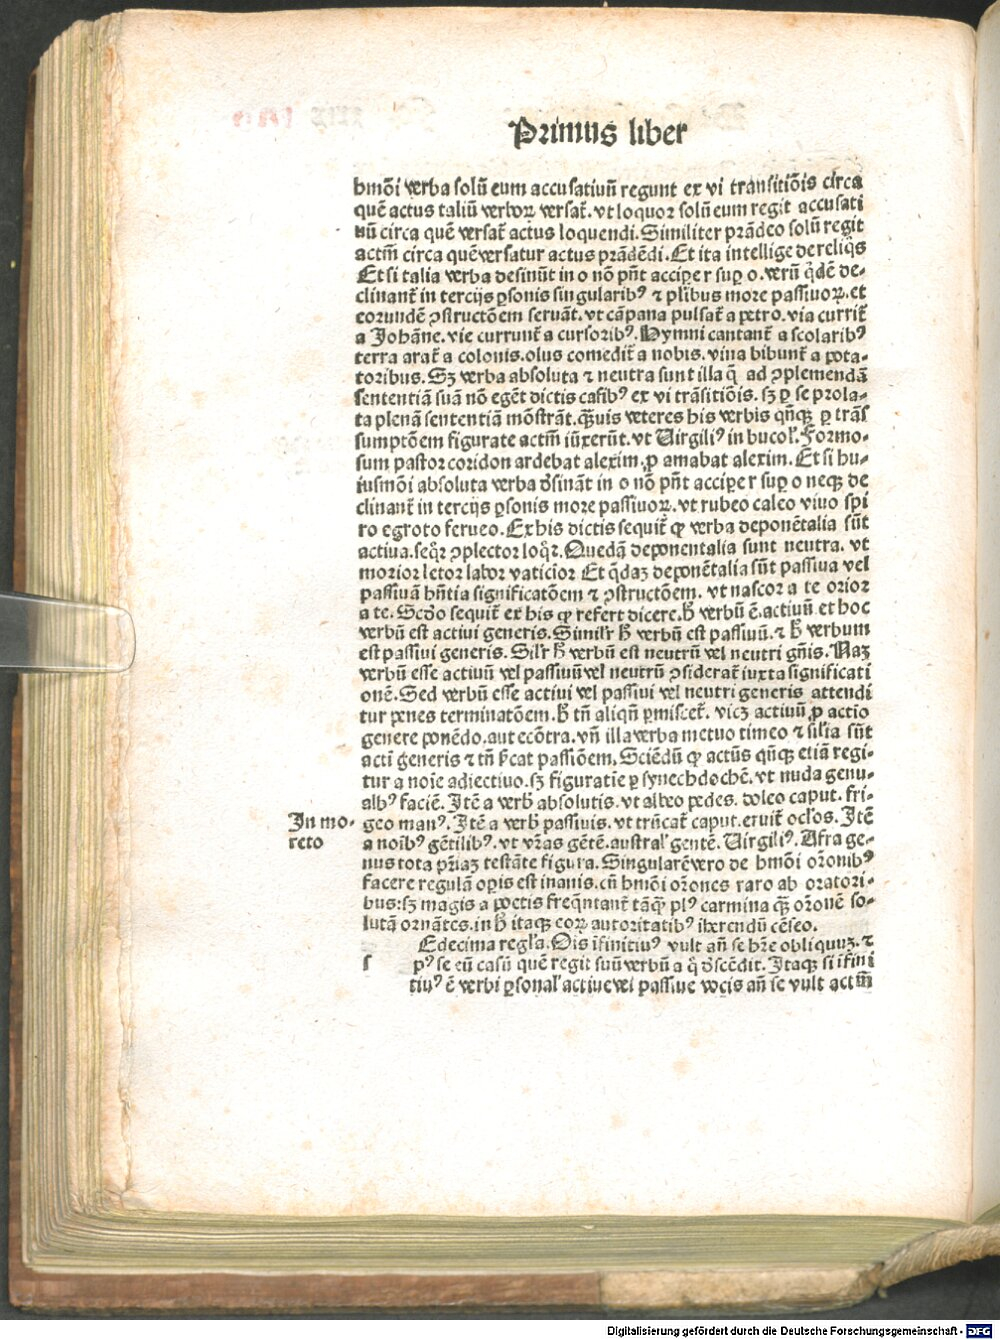 Primus liber
hmōi verba solū eum accusatiuū regunt ex vi transitiōis circa
quē actus taliū verboꝝ versat̄. vt loquor solū eum regit accusati
uū circa quē versat̄ actus loquendi. Similiter prādeo solū regit
actm̄ circa quē versatur actus prādēdi. Et ita intellige de reliq̄s
Et si talia verba desinūt in o nō pn̄t accipe r sup o. verū q̄dē de-
clinant̄ in tercijs ꝑsonis singularibꝰ ⁊ pl̄ibus more passiuoꝝ. et
eorundē ꝯstructōem seruāt. vt cāpana pulsat̄ a petro. via currit̄
a Johāne. vie currunt̄ a cursoribꝰ. Hymni cantant̄ a scolaribꝰ
terra arat̄ a colonis. olus comedit̄ a nobis. vina bibunt̄ a pota-
toribus. Sꝫ verba absoluta ⁊ neutra sunt illa q̄ ad ꝯplemendā
sententiā suā nō egēt dictis casibꝰ ex vi trāsitiōis. sꝫ ꝑ se prola-
ta plenā sententiā mōstrāt. q̄uis veteres his verbis qn̄qꝫ ꝑ trās
sumptōem figurate actm̄ iūxerūt. vt Uirgiliꝰ in bucol̓. Formo-
sum pastor coridon ardebat alexim. ꝓ amabat alexim. Et si hu-
iusmōi absoluta verba desināt in o nō pn̄t accipe r sup o neqꝫ de
clinant̄ in tercijs ꝑsonis more passiuoꝝ. vt rubeo caleo viuo spi
ro egroto ferueo. Ex his dictis sequit̄ ꝙ verba deponētalia sūt
actiua. seq̄r ꝯplector loq̄r. Quedā deponentalia sunt neutra. vt
morior letor labor vaticior Et q̄daꝫ deponētalia sūt passiua vel
passiuā hn̄tia significatōem ⁊ ꝯstructōem. vt nascor a te orior
a te. Scd̓o sequit̄ ex his ꝙ refert dicere. h̄ verbū ē. actiuū et hoc
verbū est actiui generis. Simil̓r h̄ verbū est passiuū. ⁊ h̄ verbum
est passiui generis. Sil̓r h̄ verbū est neutrū vel neutri gn̄is. Naꝫ
verbū esse actiuū vel passiuū vel neutrū ꝯsiderat̄ iuxta significati
onē. Sed verbū esse actiui vel passiui vel neutri generis attendi
tur penes terminatōem. h̄ tn̄ aliqn̄ ꝑmiscet̄. vicꝫ actiuū ꝓ actio
genere ponēdo. aut ecōtra. vn̄ illa verba metuo timeo ⁊ sil̓ia sūt
acti generis ⁊ tn̄ s̄cat passiōem. Sciēdū ꝙ actūs qn̄qꝫ etiā regi-
tur a noīe adiectiuo. sꝫ figuratie ꝑ synechdochē. vt nuda genu-
albꝰ faciē. Itē a verb̓ absolutis. vt albeo pedes. doleo caput. fri-
In mo-
reto
geo manꝰ. Itē a verb̓ passiuis. vt trūcat̄ caput. eruit̄ ocl̓os. Itē
a noībꝰ gētilibꝰ. vt vr̄as gētē. austral̓ gentē. Uirgiliꝰ. Afra ge-
nus tota pr̄iaꝫ testāte figura. Singularē vero de hmōi or̄onibꝰ
facere regulā oꝑis est inanis. cū hmōi or̄ones raro ab oratori-
bus: sꝫ magis a poetis freq̄ntant̄ tāq̄ plꝰ carmina q̄ or̄onē so-
lutā ornātes. in h̄ itaqꝫ eoꝝ autoritatibꝰ iherendū cēseo.
s Edecima regl̓a. Oīs īfinitiuꝰ vult an̄ se hr̄e obliquuꝫ. ⁊
pꝰ se eū casū quē regit suū verbū a q̄ descēdit. Itaqꝫ si īfini
tiuꝰ ē verbi ꝑsonal̓ actiue vel passiue vocis an̄ se vult actm̄
Digitalisierung gefördert durch die Deutsche Forschungsgemeinschaft - DFG